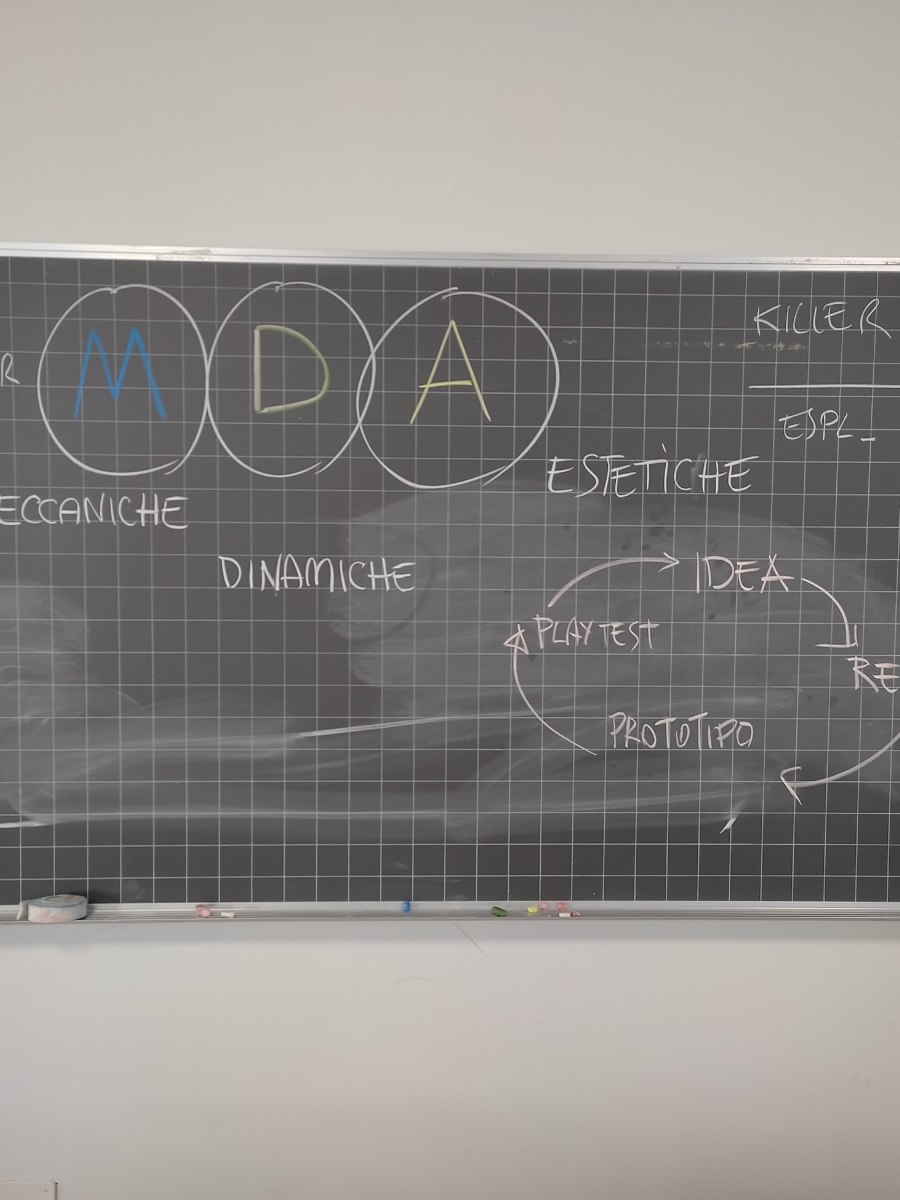 M D A
KILLER
ESPL_
ESTETICHE
ECCANICHE
DINAMICHE
IDEA
PLAYTEST
RE
PROTOTIPO